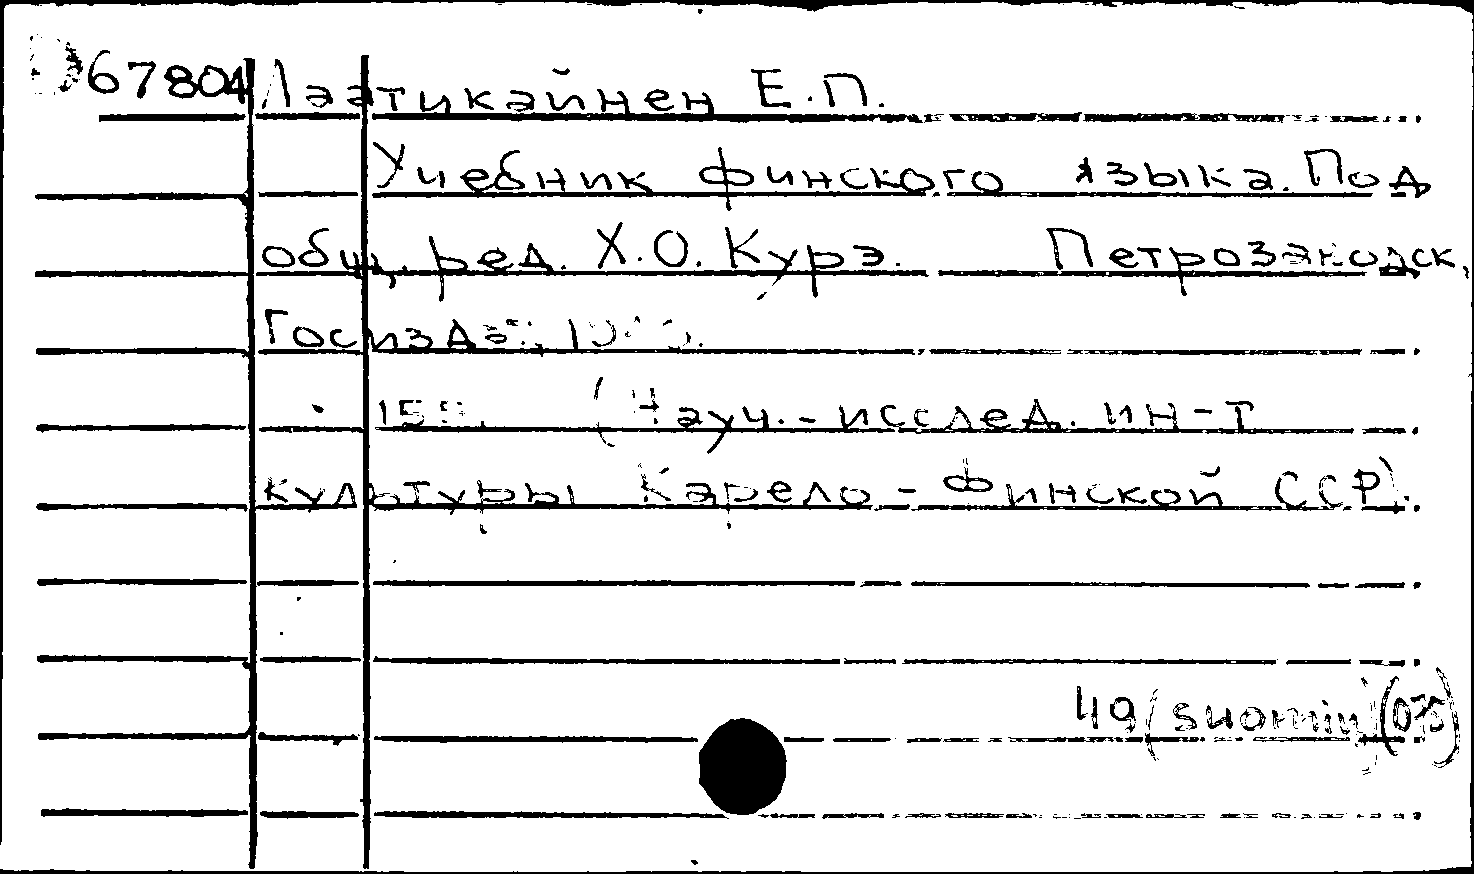 67804 Лаатикайнен Е.П.
Учебник финского языка. Под
общ. ред. Х.О. Курэ. Петрозаводск,
Госиздат,
(Науч.-исслед. ин-т
культуры Карело-Финской ССР).
49(suomin)(075)